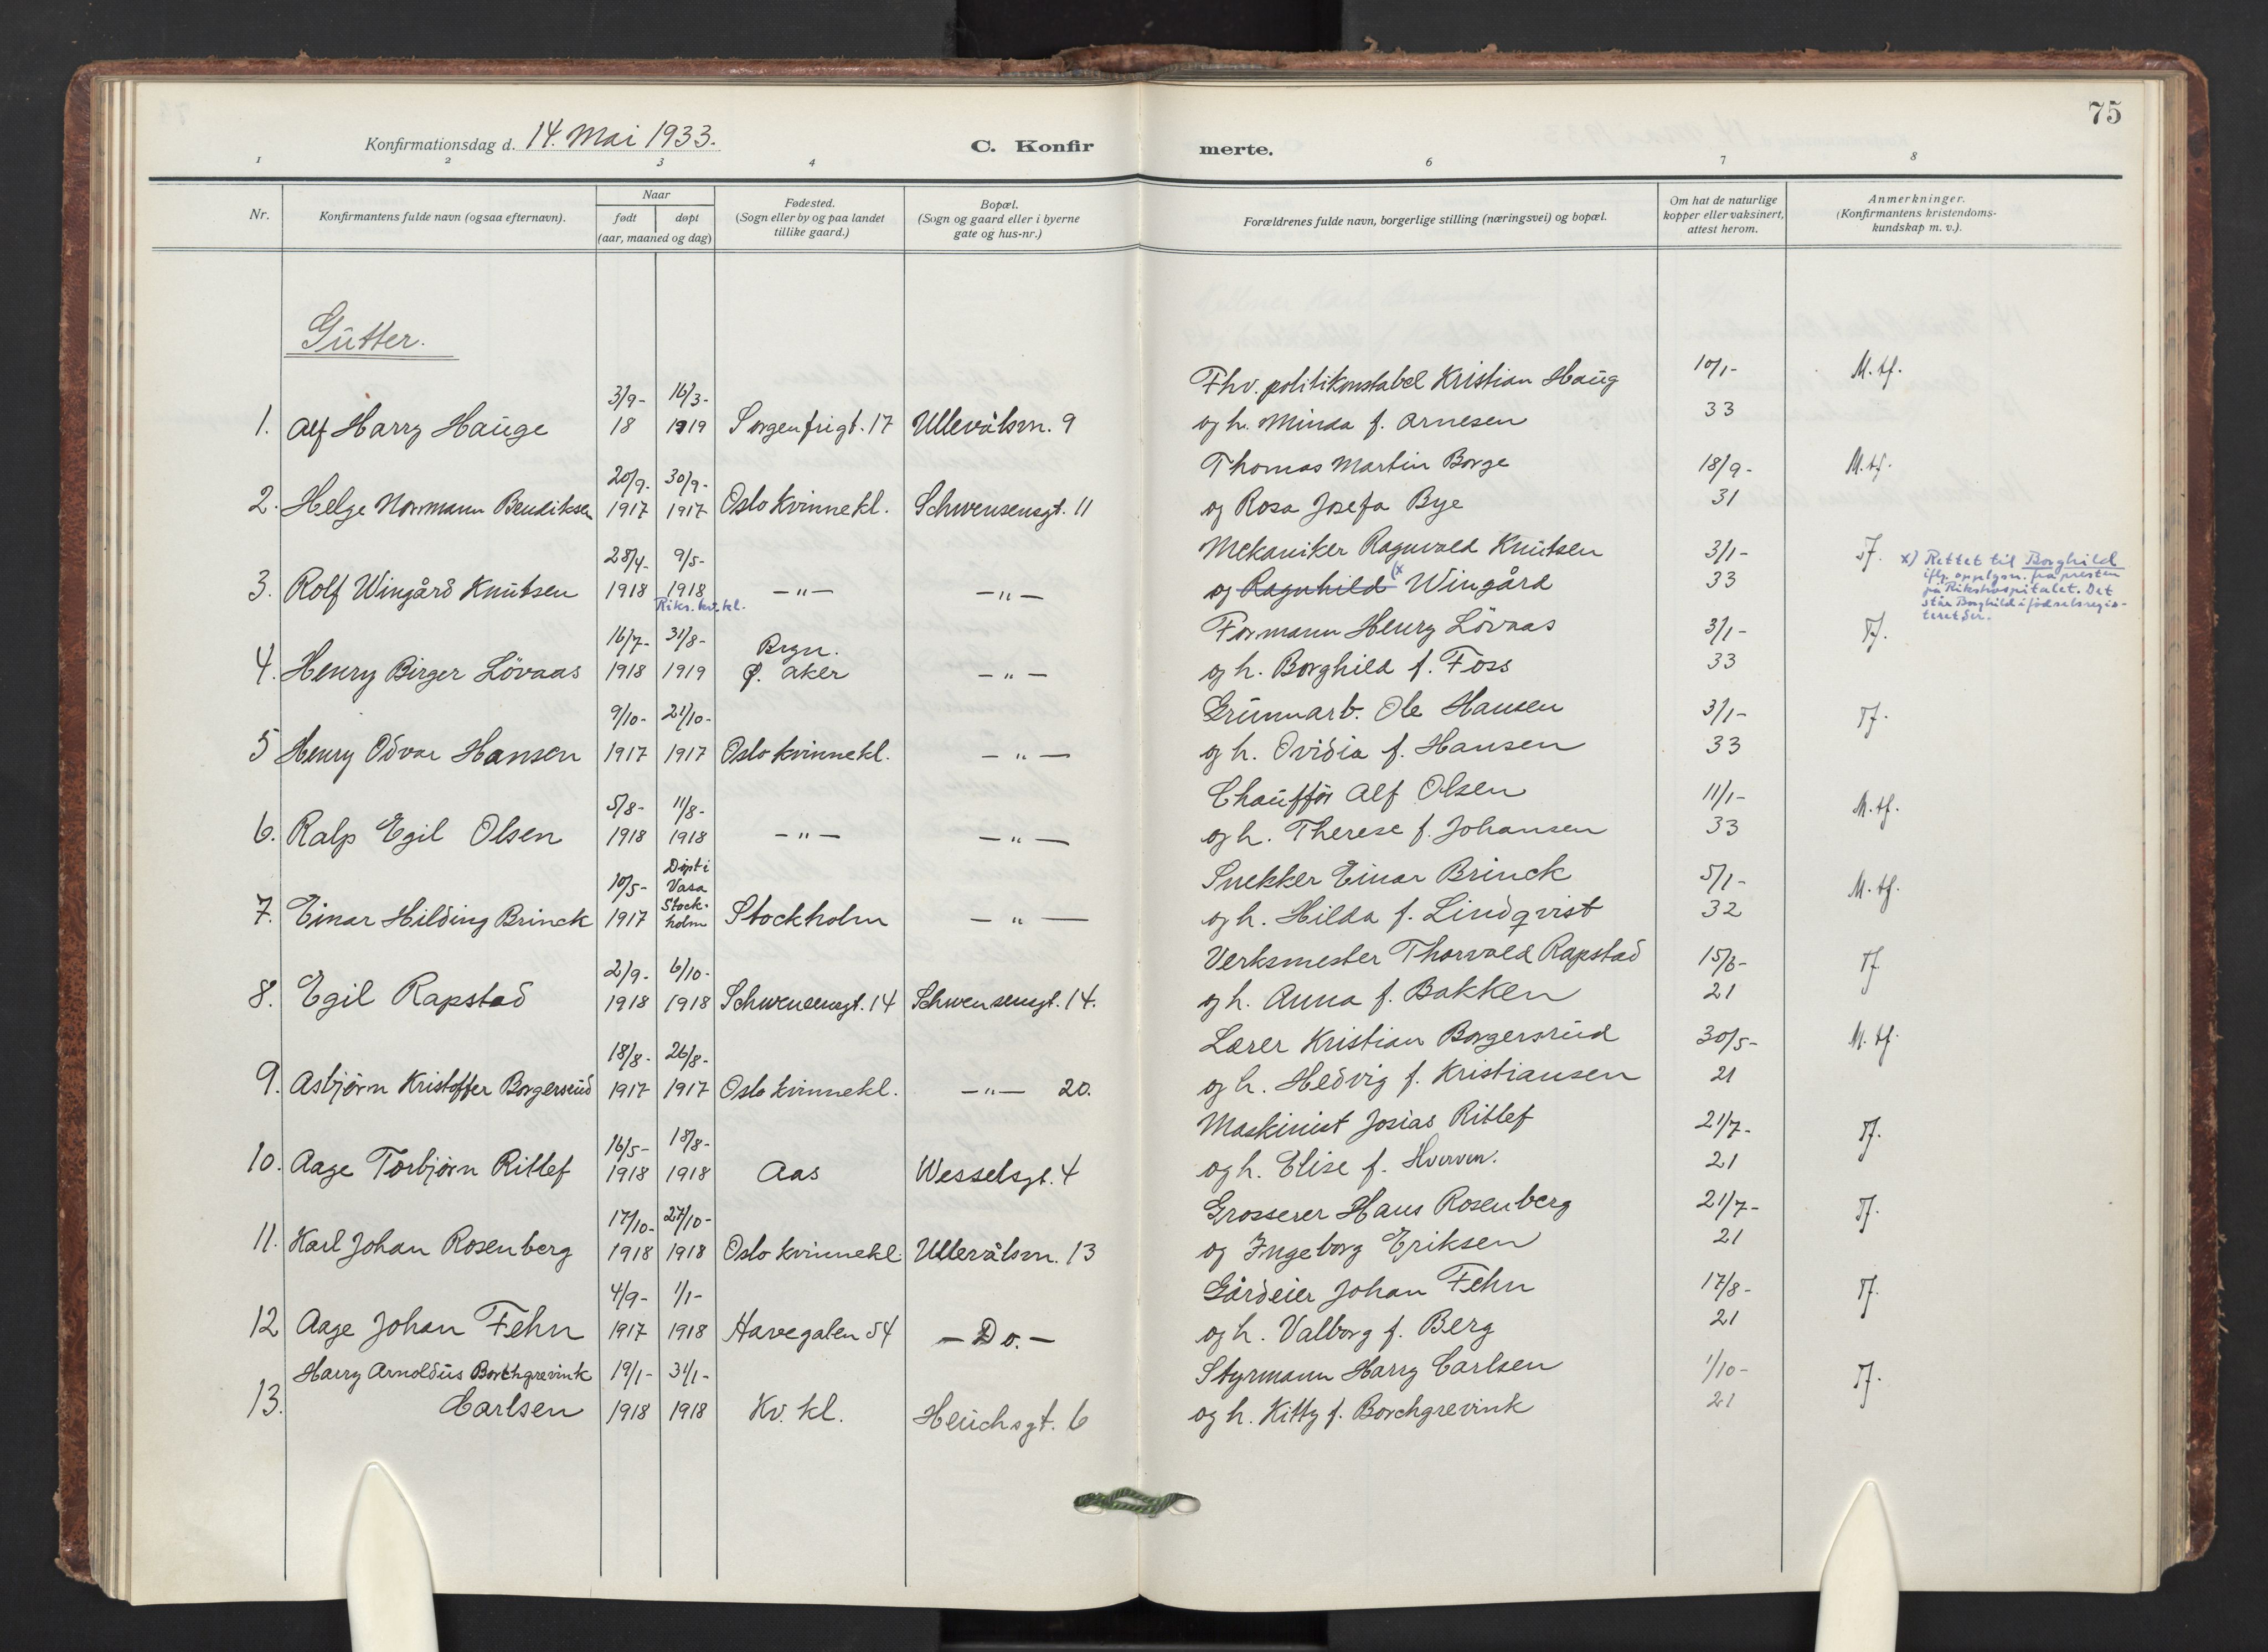 75
Konfirmationsdag d. 14. Mai 1933.
C. Konfir
merte.
1 2 3 4 6 7 8
Nr.
Konfirmantens fulde navn (ogsaa efternavn).
Naar
født døpt
(aar, maaned og dag)
Fødested.
(Sogn eller by og paa landet
tillike gaard.)
Bopæl.
(Sogn og gaard eller i byerne
gate og hus-nr.)
Forældrenes fulde navn, borgerlige stilling (næringsvei) og bopæl.
Om hat de naturlige
kopper eller vaksinert,
attest herom.
Anmerkninger.
(Konfirmantens kristendoms-
kundskap m. v.).
Gutter.
3/9- 16/3- Fhv. politikonstabel Kristian Haug 10/1- M.tf.
1. Alf Harry Hauge 18 1919 Sorgenfrigt. 17 Ullevålsvn. 9 og h. Minda f. Arnesen 33
20/9- 30/9- Thomas Martin Borge 18/9- M.tf.
2. Helge Normann Bendiksen 1917 1917 Oslo kvinnekl. Schwensensgt. 11 og Rosa Josefa Bye 31
28/4- 9/5- Mekaniker Ragnvald Knutsen 3/1- Tf.
3. Rolf Wingård Knutsen 1918 1918 -"- -"- og Ragnhild (x Wingård 33
Riks. kv. kl.
x) Rettet til Borghild
iflg. opplysn. fra presten
på Rikshospitalet. Det
står Borghild i fødselsregis-
teret der.
16/7- 31/8- Brgn. Formann Henry Lövaas 3/1- Tf.
4. Henry Birger Lövaas 1918 1919 Ø. Aker -"- og h. Borghild f. Foss 33
9/10- 21/10- Grunnarb. Ole Hansen 3/1- Tf.
5 Henry Odvar Hansen 1917 1917 Oslo kvinnekl. -"- og h. Ovidia f. Hansen 33
5/8- 11/8- Chauffør Alf Olsen 11/1- M.tf.
6. Ralp Egil Olsen 1918 1918 -"- -"- og h. Therese f. Johansen 33
10/5- Døpt i Vasa Snekker Einar Brinck 5/1- M.tf.
7. Einar Hilding Brinck 1917 Stock-holm Stockholm -"- og h. Hilda f. Lindqvist 32
2/9- 6/10- Verksmester Thorvald Rapstad 15/6- Tf
8. Egil Rapstad 1918 1918 Schwensensgt. 14 Schwensensgt. 14. og h. Anna f. Bakken 21
18/8- 26/8- Lærer Kristian Borgersrud 30/5- M.tf.
9. Asbjörn Kristoffer Borgersrud 1917 1917 Oslo kvinnekl. -"- 20. og h. Hedvig f. Kristiansen 21
16/5- 18/8- Maskinist Josias Ritlef 21/7- Tf.
10. Aage Torbjörn Ritlef 1918 1918 Aas Wesselsgt. 4 og h. Elise f. Hverven. 21
17/10- 27/10- Grosserer Hans Rosenberg 21/7- Tf.
11. Karl Johan Rosenberg 1918 1918 Oslo kvinnekl. Ullevålsvn. 13 og Ingeborg Eriksen 21
4/9- 1/1- Gårdeier Johan Fehn 17/8- Tf.
12 Aage Johan Fehn 1917 1918 Havegaten 54 -Do.- og h. Valborg f. Berg 21
Harry Arnoldus Borchgrevink 19/1- 31/1- Styrmann Harry Carlsen 1/10- Tf.
13. Carlsen 1918 1918 Kv. kl. Heuchsgt. 6 og h. Kitty f. Borchgrevink 21